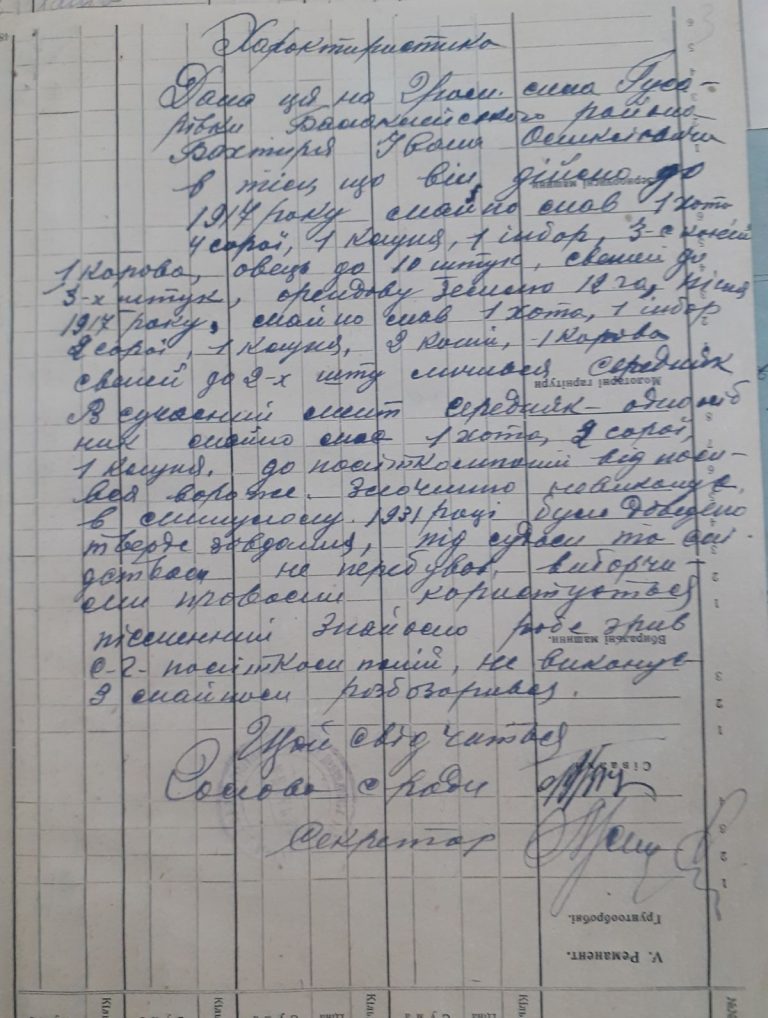 Характиристика
Дана ця на Гром. села Гуса-
рівки Балаклійського району
Бахтиря Івана Оликсієвича
в тім що він дійсно до
1917 року майно мав 1 хата
4 сараї, 1 клуня, 1 інбар, 3-є коней
1 корова, овець до 10 штук, свиней до
3-х штук, орендову землю 12 га, після
1917 року, майно мав 1 хата, 1 інбар
2 сараї, 1 клуня, 2 коній, 1 корова
свиней до 2-х шту личився середняк
В сучасний мент середняк-одноосіб
ник майно має 1 хата, 2 сараї,
1 клуня. до політкомпаній відноси-
вся вороже. Злочинно невиконує,
в минулому 1931 році було доведено
тверде завдання, під судом та слі
дством не перебував, виборчи-
ми правами користується
письменний робе зрив
с-г- політкомпаній, не виконує
З майном розбазарився.
Що й свідчиться
Голова с ради
Секретар
Молотарні гарнітури
Збиральні машини.
Сівалки
Грунтообробні.
V. Реманент.
Кіль
Ціна
Сума
Кіль
Ціна
Сума
Кіль